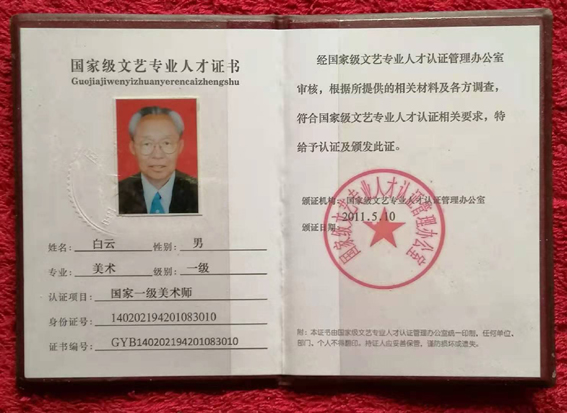 国家级文艺专业人才证书
Guojiajiwenyizhuanyerencaizhengshu
姓名：白云 性别：男
专业：美术 级别：一级
认证项目：国家一级美术师
身份证号：140202194201083010
证书编号：GYB140202194201083010
经国家级文艺专业人才认证管理办公室
审核，根据所提供的相关材料及各方调查，
符合国家级文艺专业人才认证相关要求，特
给予认证及颁发此证。
颁证机构：国家级文艺专业人才认证管理办公室
颁证日期：2011.5.10
国家级文艺专业人才认证管理办公室
附：本证书由国家级文艺专业人才认证管理办公室统一印制，任何单位、
部门、个人不得翻印。持证人应妥善保管，谨防损坏或遗失。